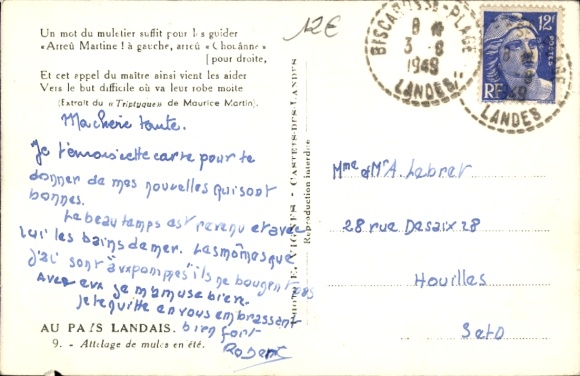 Un mot du muletier suffit pour les guider
« Arreü Martine ! à gauche, arreü « Chouânne »
[ pour droite,
Et cet appel du maître ainsi vient les aider
Vers le but difficile où va leur robe moite
(Extrait du « Triptyque » de Maurice Martin).
12€
Ma chère tante.
Je t'envois cette carte pour te
donner de mes nouvelles qui sont
bonnes.
Le beau temps est revenu et avec
lui les bains de mer. Les mômes que
j'ai sont "aux pompes" ils ne bougent pas
Avec eux je m'amuse bien.
Je te quitte en vous embrassant
bien fort
Robert
AU PAYS LANDAIS.
9. - Attelage de mules en été.
VIGNES - CASTETS-DES-LANDES
Reproduction interdite
BISCARROSSE-PLAGE
8 H
3 - 8
1949
LANDES
12F
POSTES
RF
49
LANDES
Mme et Mr A. Lebret
28 rue Desaix 28
Houilles
S et O